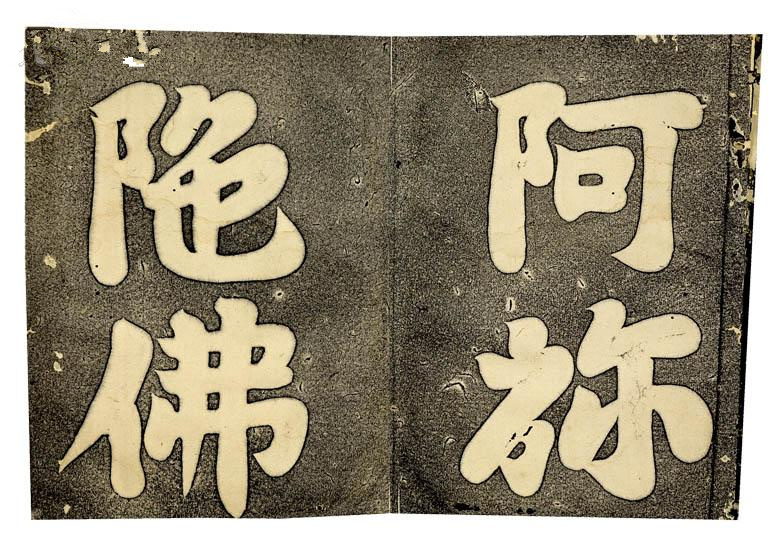 阿祢
陁佛